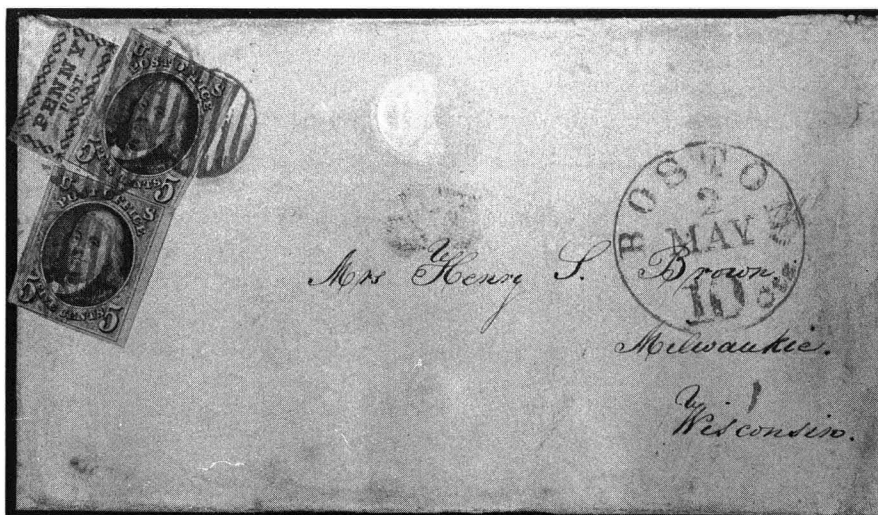 PENNY
POST.
POST OFFICE
FIVE CENTS
5 5
U S
POST OFFICE
FIVE CENTS
5 5
BOSTON
2
MAY
10 cts
Mrs Henry S. Brown.
Milwaukie.
Wisconsin.